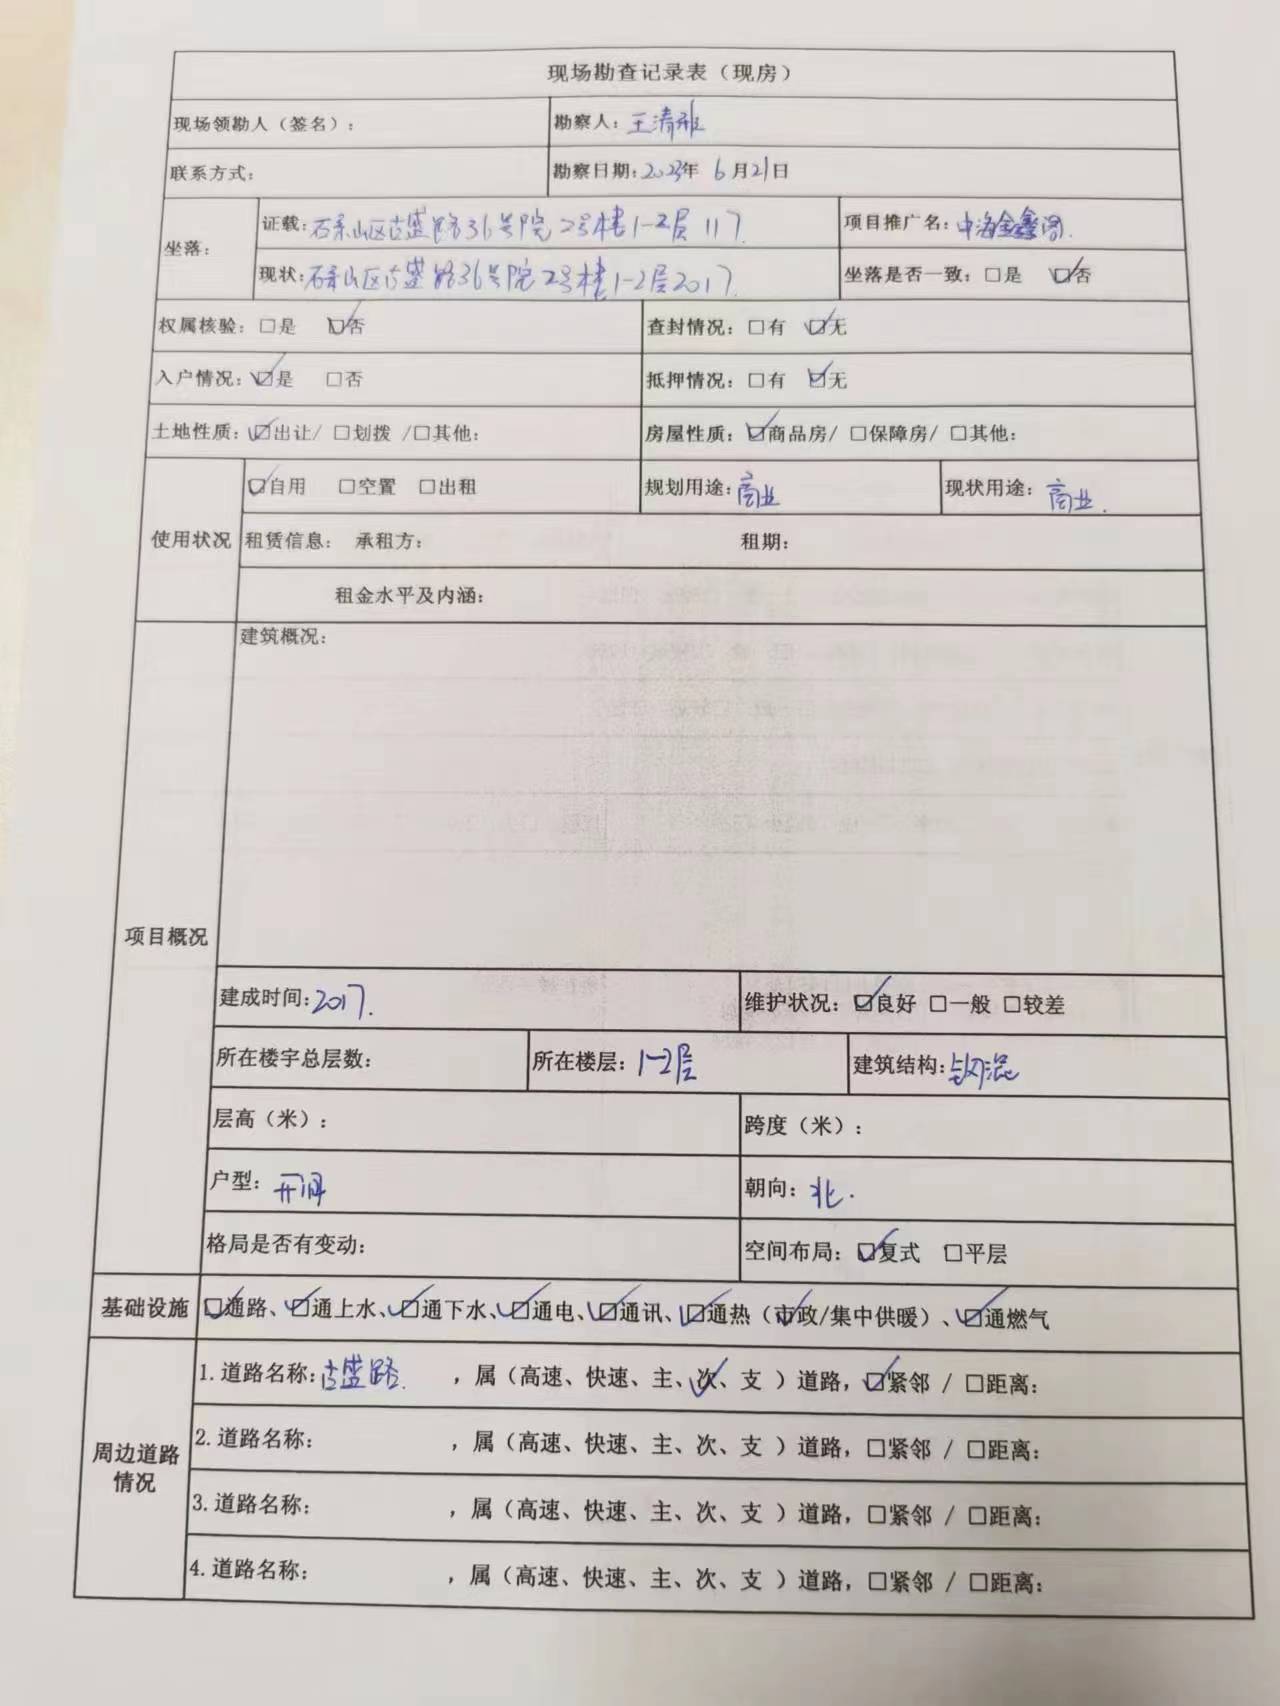 现场勘查记录表（现房）
现场领勘人（签名）： 勘察人：王清雅
联系方式： 勘察日期：2023年 6月21日
坐落： 证载：石景山区古盛路36号院2号楼1-2层117 项目推广名：中海金鑫阁
现状：石景山区古盛路36号院2号楼1-2层2017 坐落是否一致：□是 ☑否
权属核验：□是 ☑否 查封情况：□有 ☑无
入户情况：☑是 □否 抵押情况：□有 ☑无
土地性质：☑出让/ □划拨 /□其他： 房屋性质：☑商品房/ □保障房/ □其他：
使用状况 ☑自用 □空置 □出租 规划用途：商业 现状用途：商业.
租赁信息： 承租方： 租期：
租金水平及内涵：
项目概况 建筑概况：
建成时间：2017. 维护状况：☑良好 □一般 □较差
所在楼宇总层数： 所在楼层：1-2层 建筑结构：钢混
层高（米）： 跨度（米）：
户型：开间 朝向：北.
格局是否有变动： 空间布局：☑复式 □平层
基础设施 ☑通路、☑通上水、☑通下水、☑通电、☑通讯、☑通热（市政/集中供暖）、☑通燃气
周边道路情况 1.道路名称：古盛路. ，属（高速、快速、主、次、支 ）道路，☑紧邻 / □距离：
2.道路名称： ，属（高速、快速、主、次、支 ）道路，□紧邻 / □距离：
3.道路名称： ，属（高速、快速、主、次、支 ）道路，□紧邻 / □距离：
4.道路名称： ，属（高速、快速、主、次、支 ）道路，□紧邻 / □距离：